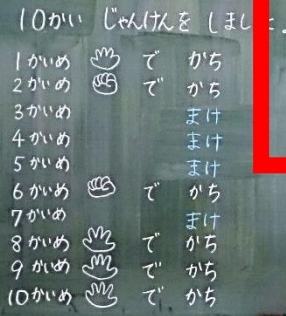 10かい じゃんけんを しました。
1かいめ で かち
2かいめ で かち
3かいめ まけ
4かいめ まけ
5かいめ まけ
6かいめ で かち
7かいめ まけ
8かいめ で かち
9かいめ で かち
10かいめ で かち